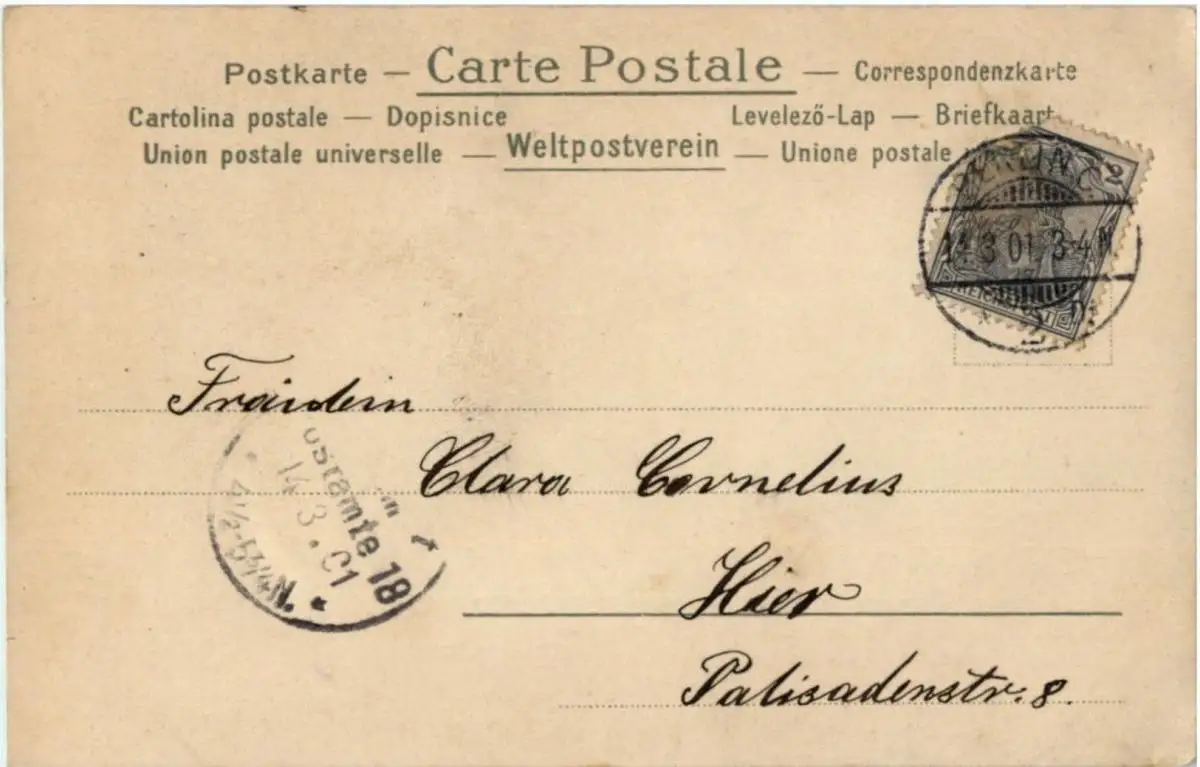 Postkarte — Carte Postale — Correspondenzkarte
Cartolina postale — Dopisnice
Levelező-Lap — Briefkaart
Union postale universelle — Weltpostverein — Unione postale
2
14 3 01 3-4 N
Fräulein
Clara Cornelius
ostamte 18
14.3.01
4½-5¼N.
Hier
Palisadenstr. 8.